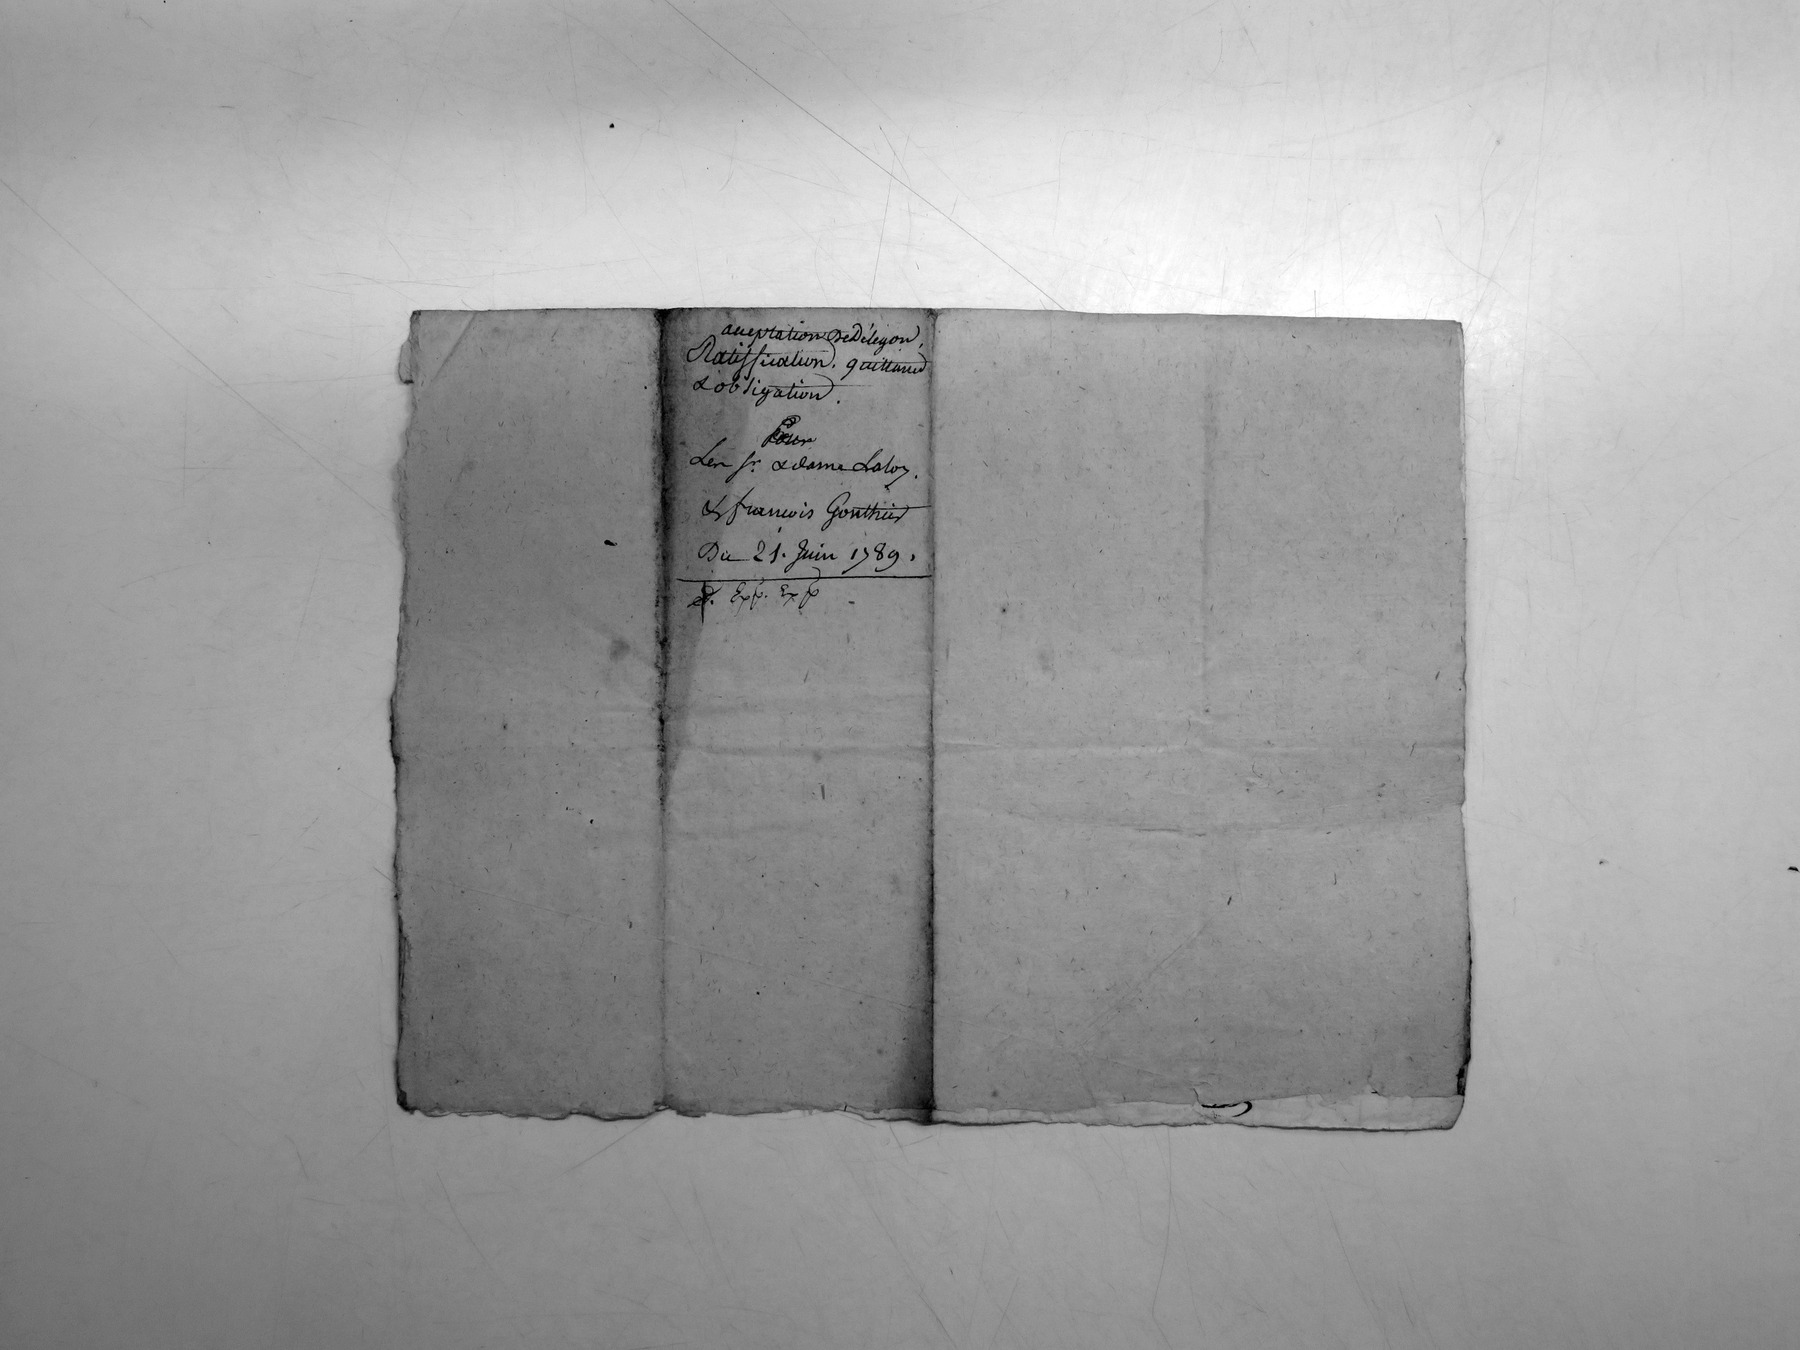 acceptation De Délégon,
Ratiffication. quittance
& obligation.
Pour
Les Sr. & dame Laloy.
& francois Gonthier
Du 21. Juin 1789.
Exp. Exp